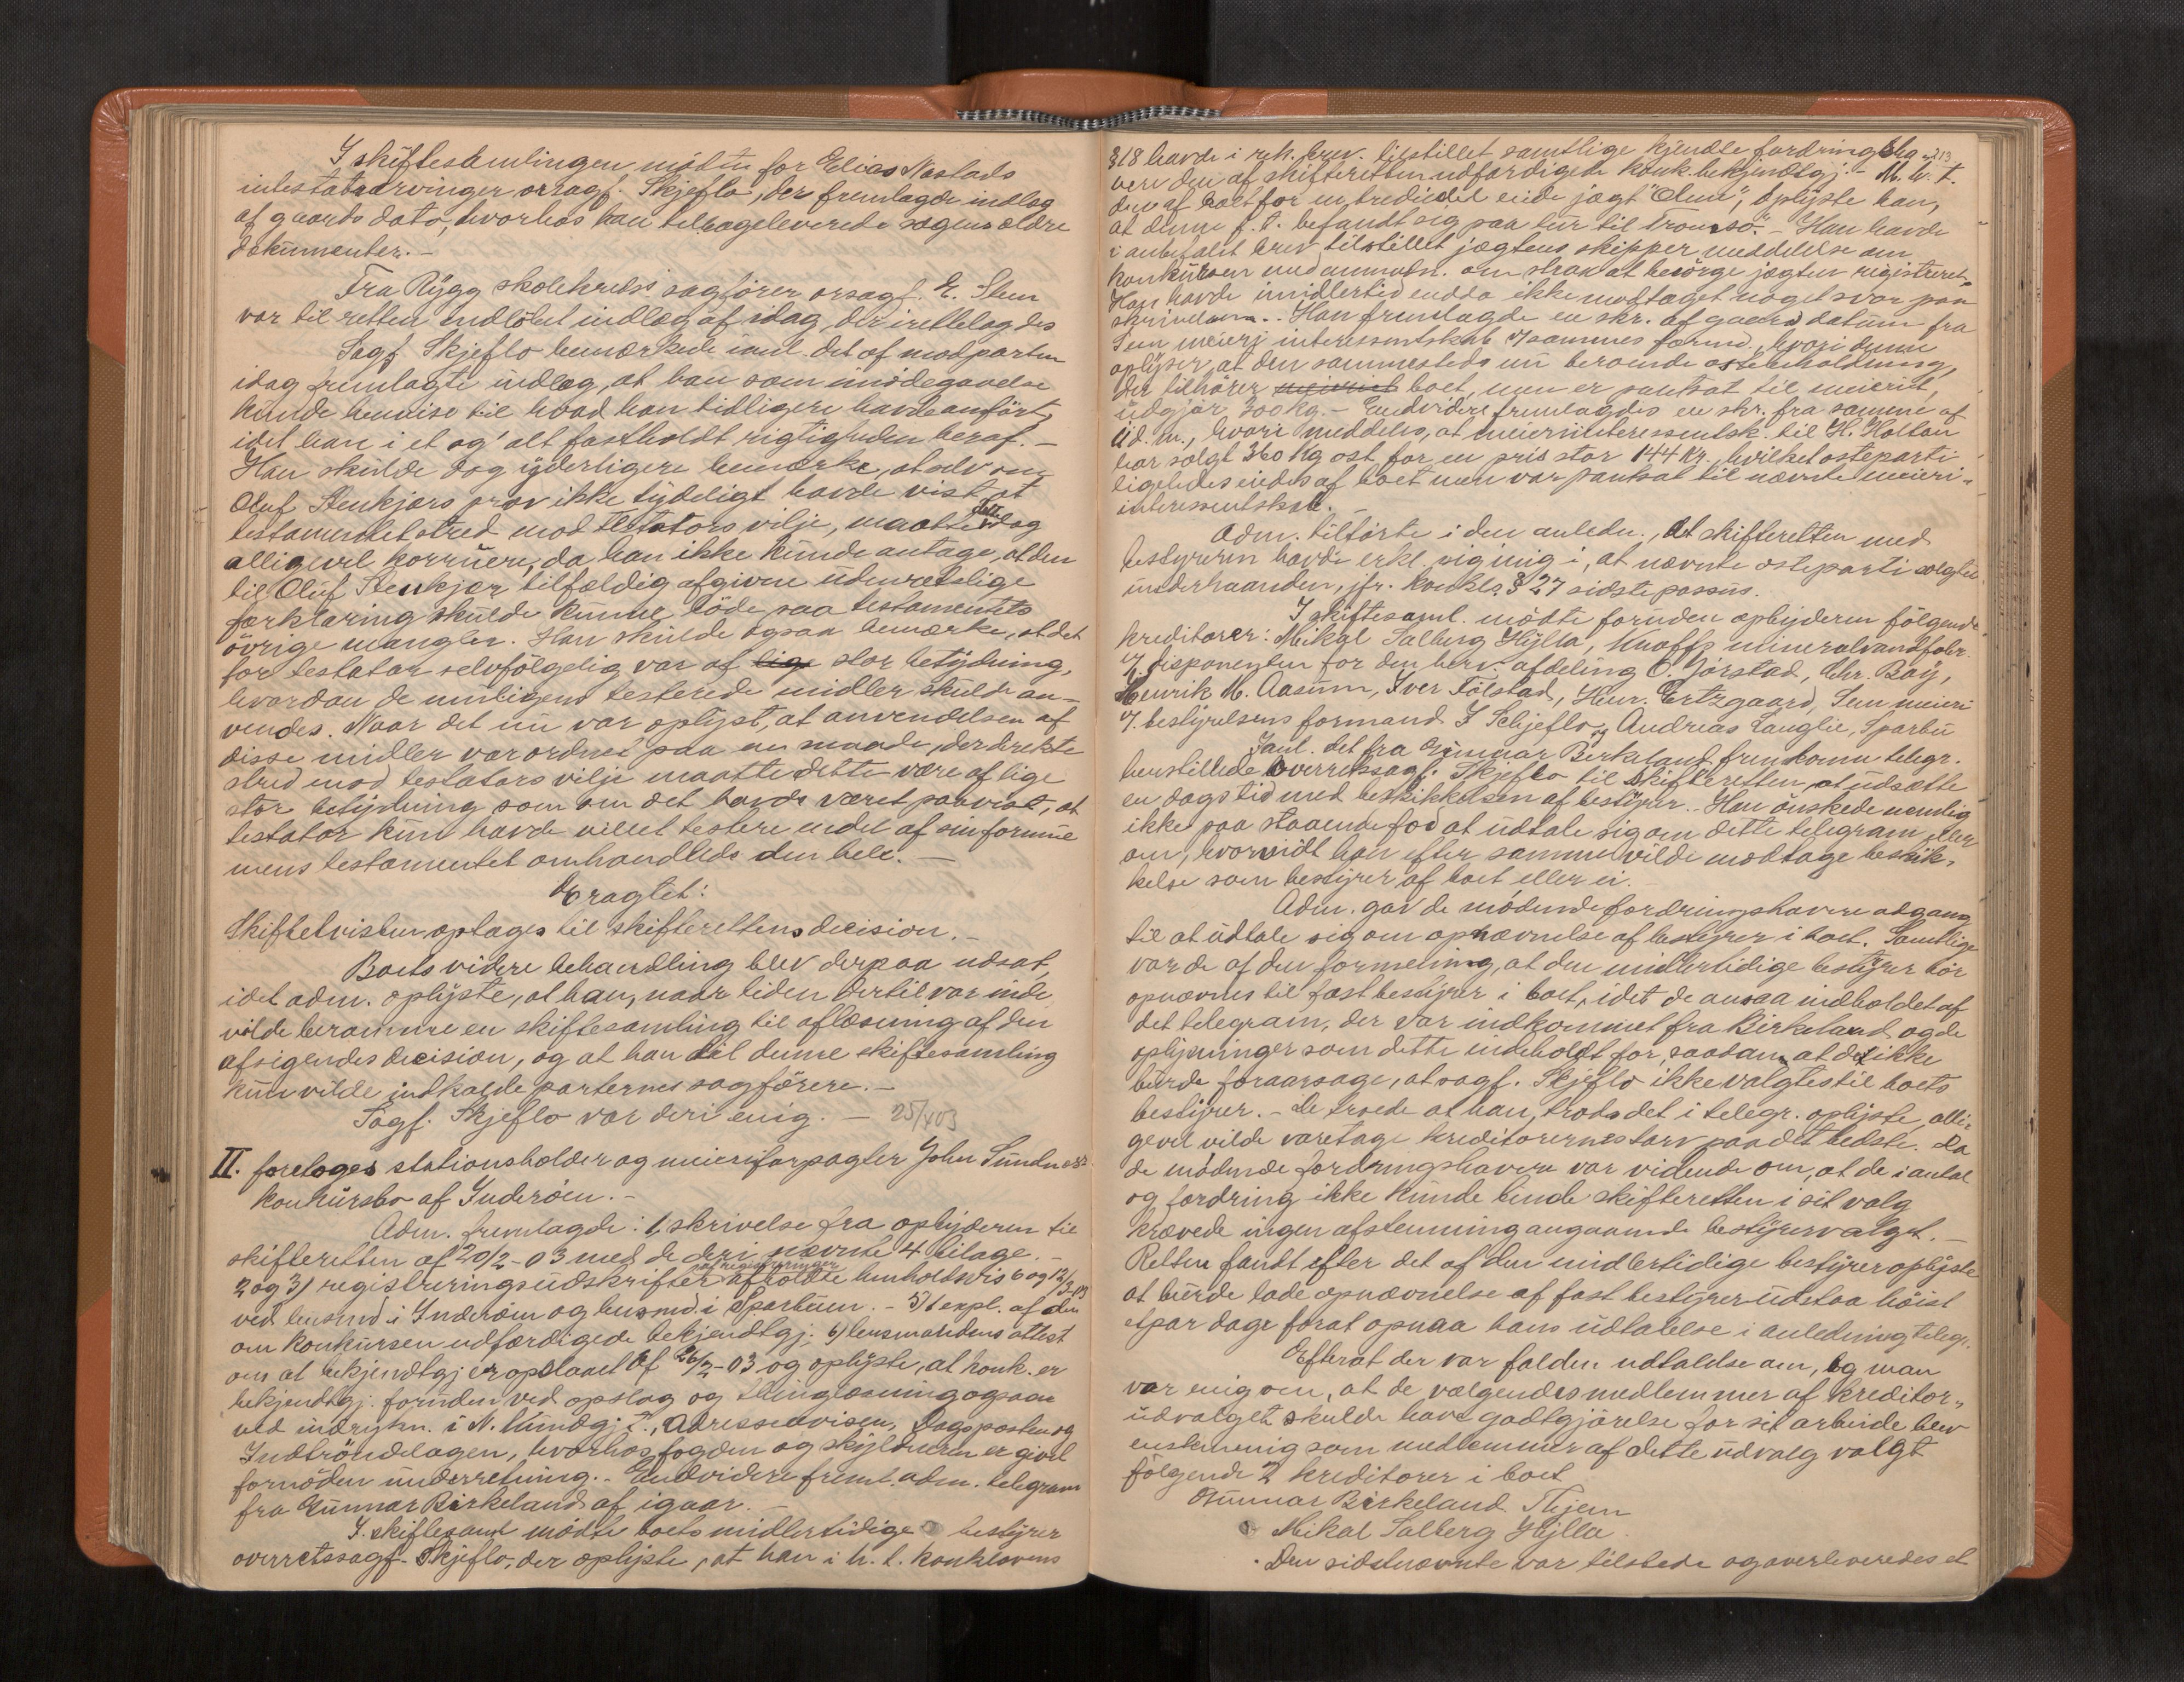 I skiftesamlingen mødte for Elias Nastads
intestatarvinger orsagf. Skjeflo, der fremlagde indlæg
af gaards dato, hvorhos han tilbageleverede sagens ældre
dokumenter. –
Fra Rygg skolekreds's sagfører orsagf. E. Sten
var til retten indløbet indlæg af idag, der irettelagdes
Sagf. Skjeflo bemærkede ianl. det af modparten
idag fremlagte indlæg, at han som imødegaaelse
kunde henvise til hvad han tidligere havde anført,
idet han i et og alt fastholdt rigtigheden heraf. –
Han skulde dog yderligere bemærke, at selv om
Oluf Stenkjærs prov ikke tydeligt havde vist, at
testamentet stred mod testators vilje, maatte dette dog
alligevel , da han ikke kunde antage, at den
til Oluf Stenkjær tilfældig afgivne udenretslige
forklaring skulde kunne bøde paa testamentets
øvrige mangler. Han skulde ogsaa bemærke, at det
for testator selvfølgelig var af lige stor betydning,
hvordan de muligens testerede midler skulde an-
vendes. Naar det nu var oplyst, at anvendelsen af
disse midler var ordnet paa en maade, der direkte
stred mod testators vilje maatte dette være af lige
stor betydning som om det havde været paavist, at
testator kun havde villet testere endel af sin formue
mens testamentet omhandlede den hele. –
Eragtet:
Skiftetvisten optages til skifterettens decision. –
Boets videre behandling blev derpaa udsat,
idet adm. oplyste, at han, naar tiden dertil var inde
vilde beramme en skiftesamling til aflæsning af den
afsigendes decision, og at han til denne skiftesamling
kun vilde indkalde parternes sagførere. –
Sagf. Skjeflo var deri enig. – 25/ 03
II. foretoges stationsholder og meieriforpagter John Sundnes's
konkursbo af Inderøen. –
Adm. fremlagde: 1, skrivelse fra opbyderen til
skifteretten af 20/2-03 med de deri nævnte 4 bilage. –
2 og 3) registreringsudskrifter af registreringer afholdte henholdsvis 6 og 12/3-03
ved lensmd i Inderøen og lensmd. i Sparbuen. – 5) 1 expl. af den
om konkursen udfærdigede bekjendtgj; 6) lensmandens attest
om at bekjendtgj er opslaaet af 26/2-03 og oplyste, at konk. er
bekjendtgj. foruden ved opslag og thinglæsning ogsaa
ved indrykn. i N. kundgj. t., Adresseavisen, Dagsposten og
Indtrøndelagen, hvorhos fogden og skyldneren er givet
fornøden underretning. – Endvidere freml. adm. telegram
fra Gunnar Birkeland af igaar. –
I skiftesaml mødte boets midlertidige bestyrer
overretssagf. Skjeflo, der oplyste, at han i h. t. konklovens
§ 18 havde i rek. brev. tilstillet samtlige kjendte fordringsha- 213
vere den af skifteretten udfærdigede konk. bekjendtgj. – M. h. t.
den af boet for en trediedel eiede jægt "Oline", oplyste han,
at denne f. t. befandt sig paa tur til Tromsø. – Han havde
i anbefalet brev tilstillet jægtens skipper meddelelse om
konkursen med anmodn. om strax at besørge jægten registreret,
Han havde imidlertid endda ikke modtaget noget svar paa
skrivelsen. – Han fremlagde en skr. af gaars datum fra
Sem meieri interessentskab v/ sammes formd., hvori denne
oplyser, at den sammesteds nu beroende ostebeholdning,
der tilhører meieriet boet, men er pantsat til meieriet,
udgjør 300 kg. – Endvidere fremlagdes en skr. fra samme af
d. m., hvori meddeles, at meieriinteressentsk. til H. Holtan
har solgt 360 kg ost for en pris stor 144 kr., hvilket osteparti
ligeledes eiedes af boet men var pantsat til nævnte meieri-
interessentskab. –
Adm. tilførte i den anledn., at skifteretten med
bestyreren havde erkl. sig enig i, at nævnte osteparti solgtes
underhaanden, jfr. konkls § 27 sidste passus.
I skiftesaml. mødte foruden opbyderen følgende
kreditorer: Mikal Salberg Hylla, Knoffs mineralvandfabr.
v/ disponenten for den herv. afdeling O. Gjørstad, Chr. Bay,
Henrik M. Aasum, Iver Tølstad, Henr. Ertzgaard, Sem meieri
v/ bestyrelsens formand I Schjeflo, og Andreas Langlie, Sparbu
Ianl. det fra Gunnar Birkeland fremkomne telegr.
henstillede overretssagf. Skjeflo til skifteretten at udsætte
en dags tid med beskikkelsen af bestyrer. – Han ønskede nemlig
ikke paa staaende fod at udtale sig om dette telegram, eller
om, hvorvidt han efter samme vilde modtage beskik-
kelse som bestyrer af boet, eller ei. –
Adm. gav de mødende fordringshavere adgang
til at udtale sig om opnævnelse af bestyrer i boet. Samtlige
var de af den formening, at den midlertidige bestyrer bør
opnævnes til fast bestyrer i boet, idet de ansaa indholdet af
det telegram, der var indkommet fra Birkeland og de
oplysninger som dette indeholdt for saadan, at det ikke
burde foraarsage, at sagf. Skjeflo ikke valgtes til boets
bestyrer. – De troede at han, trods det i telegr. oplyste, alli-
gevel vilde varetage kreditorernes tarv paa det bedste. Da
de mødende fordringshavere var vidende om, at de i antal
og fordring ikke kunde binde skifteretten i sit valg
krævede ingen afstemning angaaende bestyrervalget. –
Retten fandt efter det af den midlertidige bestyrer oplyste
at burde lade opnævnelse af fast bestyrer udstaa høist
etpar dage forat opnaa hans udtalelse i anledning telegr.
Efterat der var falden udtalelse om, og man
var enig om, at de vælgendes medlemmer af kreditor-
udvalget skulde have godtgjørelse for sit arbeide blev
enstemmig som medlemmer af dette udvalg valgt
følgende 2 kreditorer i boet
Gunnar Birkeland Thjem
Mikal Salberg Hylla.
Den sidstnævnte var tilstede og overleveredes et